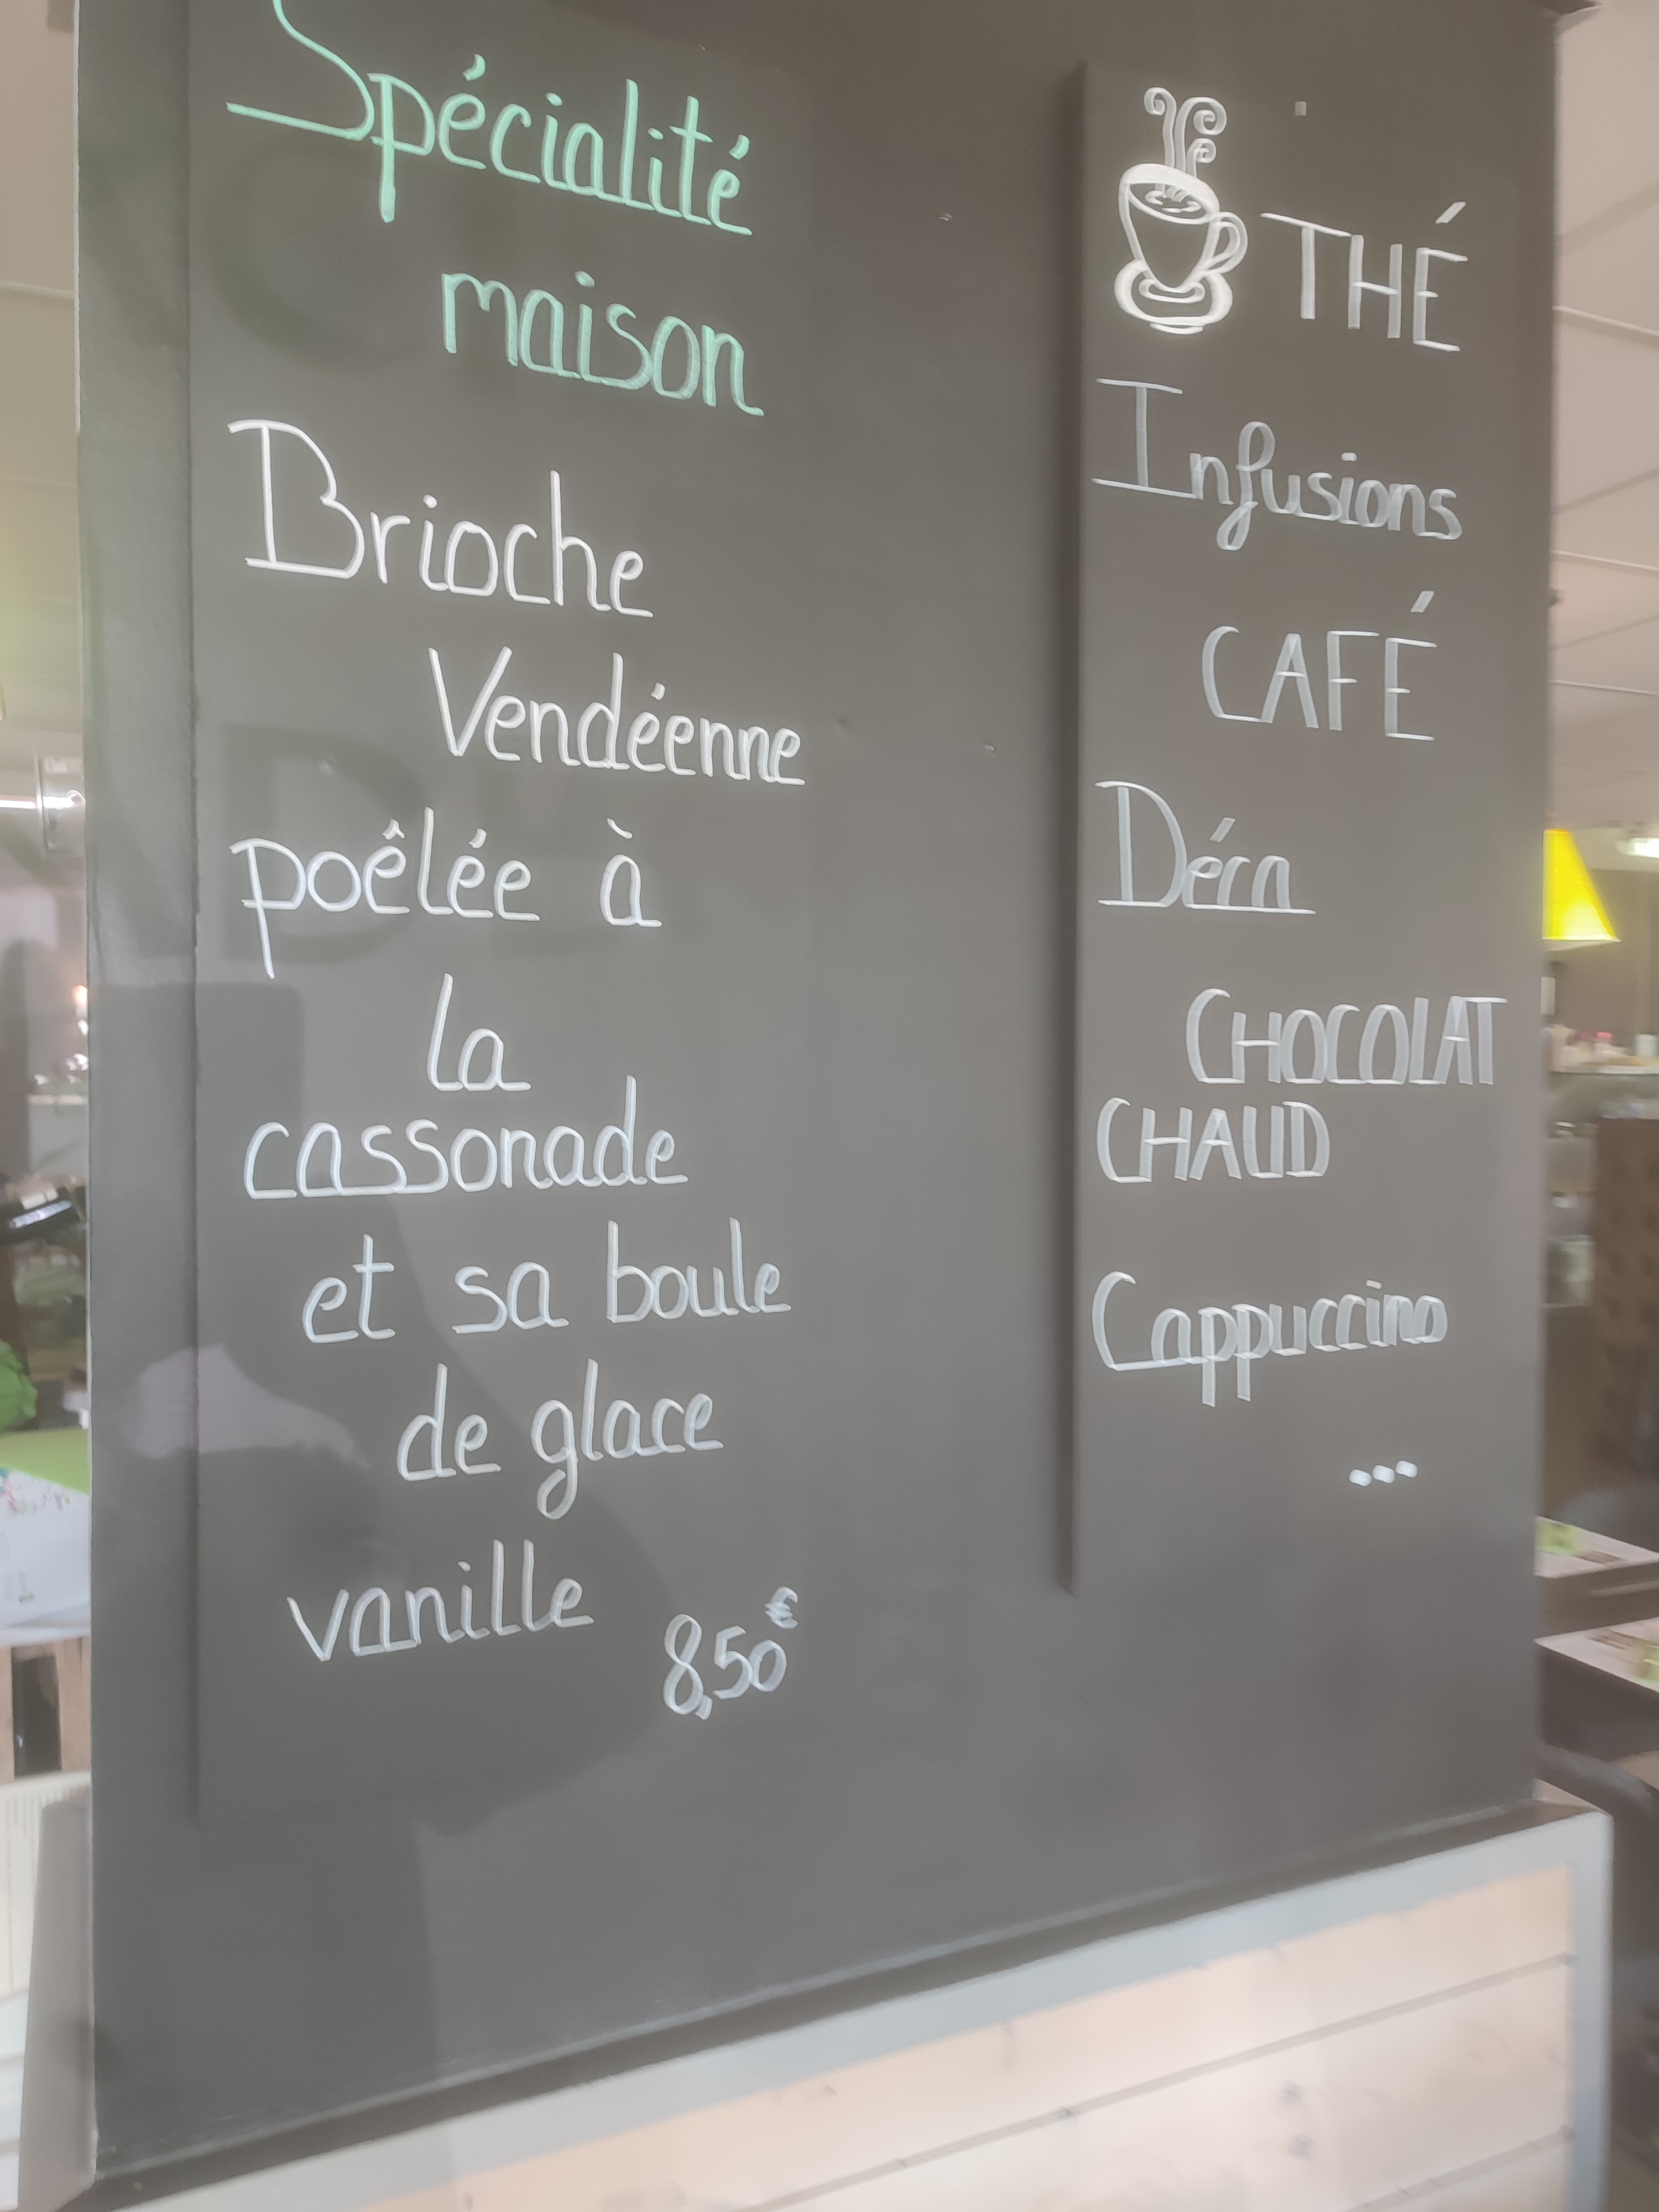 Spécialité
maison
Brioche
Vendéenne
poêlée à
la
cassonade
et sa boule
de glace
vanille
8,50€
THÉ
Infusions
CAFÉ
Déca
CHOCOLAT
CHAUD
Cappuccino
...